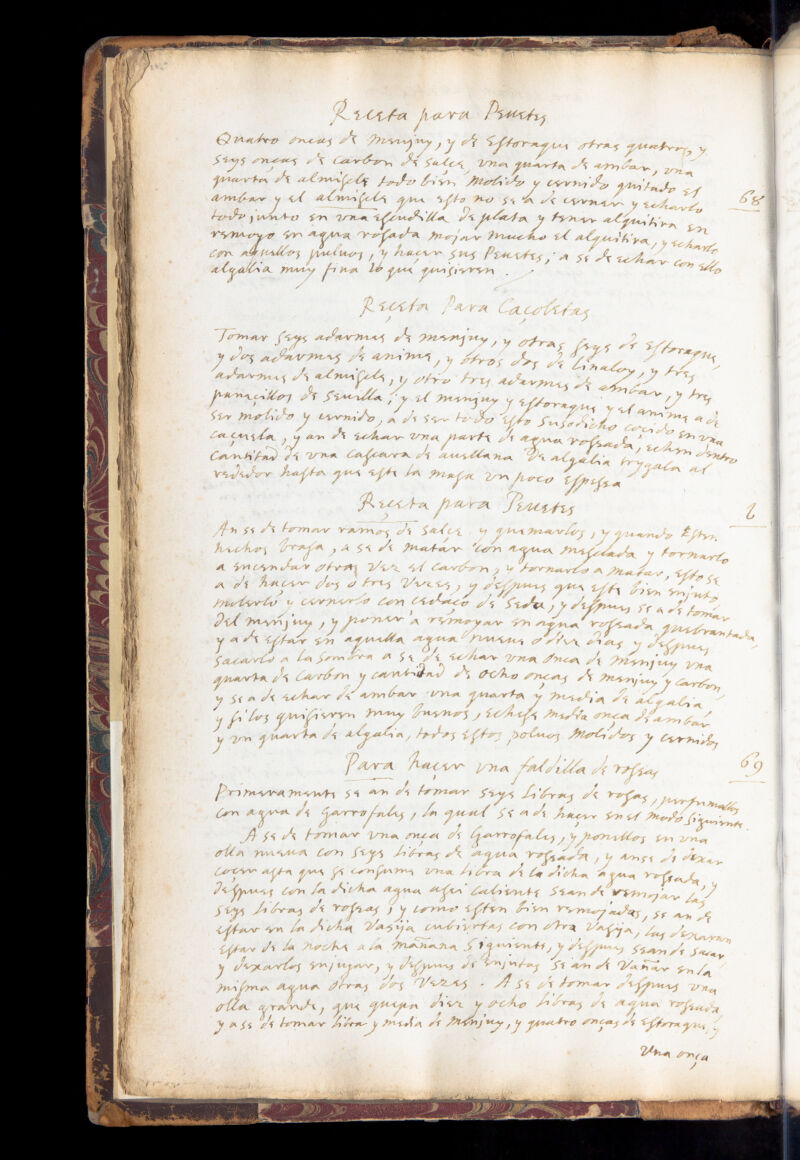 Receta para Peuetes
Quatro onças de menjuy, y de Estoraque otras quatro, y
seys onças de carbon de salce, vna quarta de ambar, vna
quarta de almiscle todo bien molido y cernido quitado el
ambar y el almiscle que esto no se a de cerner y echarlo
todo junto en vna escudilla de plata y tener alquitira en
remojo en agua rosada mojar mucho el alquitira, y echarlo
con aquellos puluos, y hacer sus Peuetes; a se de echar con ello
algalia muy fina lo que quisieren.
68
Receta Para Caçoletas
Tomar seys adarmes de menjuy, y otras seys de Estoraque,
y dos adarmes de anime, y otros dos de linaloy, y tres
adarmes de almiscle, y otro tres adarmes de ambar, y tres
panecillos de seuilla; y el menjuy y estoraque y el anime a de
ser molido y cernido, a de ser todo esto susodicho cocido en vna
caçuela, y an de echar vna parte de agua rosada, echen dentro
cantitad de vna cascara de auellana de algalia trygala al
rededor hasta que este la masa vn poco espessa
Receta para Peuetes
An se de tomar ramos de salce y quemarlos, y quando Esten
hechos brasa, a se de matar con agua mesclada y tornarlo
a encendar otras vez el carbon, y tornarlo a matar, esto se
a de hacer dos o tres vezes, y despues que este bien enjuto
molerlo y cernerlo con cedaço de seda, y despues se a de tomar
del menjuy, y poner a remojar en agua rosada quebrantada,
y a de estar en aquella agua nueue o diez dias y despues
sacarlo a la sombra a se de echar vna onça de menjuy vna
quarta de carbon y cantidad de ocho onças de menjuy y carbon,
y se a de echar de ambar vna quarta y media de algalia,
y si los quisieren muy buenos, echese media onça de ambar
y vn quarta de algalia, todos estos poluos molidos y cernidos
Para hacer vna faldilla de rosas
69
Primeramente se an de tomar seys libras de rosas, perfumalles
con agua de Garrofales, la qual se a de hacer en el modo siguiente.
A se de tomar vna onça de Garrofales, y ponellos en vna
olla nueua con seys libras de agua rosada, y anse de dexar
cocer asta que se consume vna libra de la dicha agua rosada, y
despues con la dicha agua assi caliente sean de remojar las
seys libras de rosas; y como esten bien remojadas, se an de
estar en la dicha vasija cubiertas con otra vasija, las dexaran
estar de la noche a la mañana siguiente, y despues sean de sacar,
y dexarlos enjugar, y despues de enjutas se an de vañar en la
misma agua otras dos vezes. A se de tomar despues vna
olla grande, que quepa diez y ocho libras de agua rosada
y a se de tomar libra y media de menjuy, y quatro onças de estoraque, y
vna onça